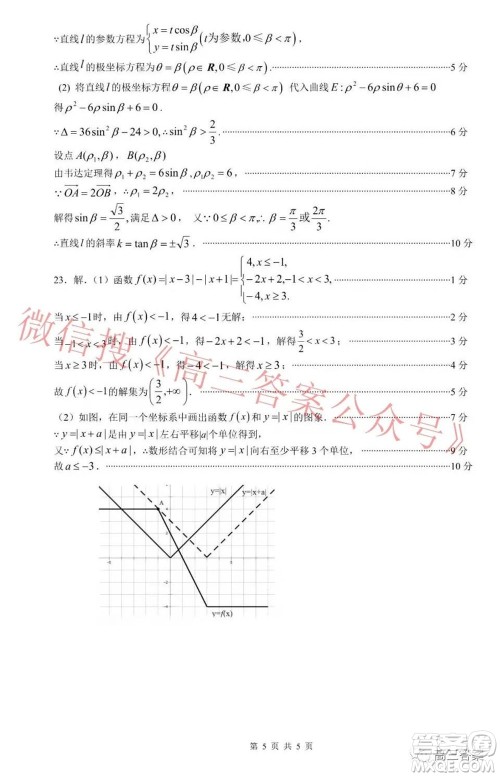 ∵直线 l 的参数方程为{x = t cos β, y = t sin β (t为参数, 0 ≤ β < π),
∴直线 l 的极坐标方程为 θ = β (ρ ∈ R, 0 ≤ β < π)…………5 分
(2) 将直线 l 的极坐标方程为 θ = β (ρ ∈ R, 0 ≤ β < π) 代入曲线 E : ρ² − 6ρ sin θ + 6 = 0
得 ρ² − 6ρ sin β + 6 = 0 .
∵ Δ = 36sin² β − 24 > 0, ∴ sin² β > 2/3 …………6 分
设点 A(ρ₁, β) , B(ρ₂, β)
由韦达定理得 ρ₁ + ρ₂ = 6 sin β, ρ₁ρ₂ = 6,…………7 分
∵ OA = 2OB, ∴ ρ₁ = 2ρ₂ …………8 分
解得 sin β = √3/2, 满足 Δ > 0 , 又∵ 0 ≤ β < π, ∴ β = π/3 或 2π/3
∴直线 l 的斜率 k = tan β = ±√3 .…………10 分
23. 解.(1) 函数 f(x) = |x − 3| − |x + 1| = {4, x ≤ −1, −2x + 2, −1 < x < 3, −4, x ≥ 3. …………1 分
当 x ≤ −1 时, 由 f(x) < −1, 得 4 < −1 无解;…………2 分
当 −1 < x < 3 时, 由 f(x) < −1, 得 −2x + 2 < −1, 解得 3/2 < x < 3 ;…………3 分
当 x ≥ 3 时, 由 f(x) < −1, 得 −4 < −1, 解得 x ≥ 3 ;…………4 分
故 f(x) < −1 的解集为 (3/2, +∞) .…………5 分
(2) 如图, 在同一个坐标系中画出函数 f(x) 和 y = |x| 的图象.…………7 分
∵ y = |x + a| 是由 y = |x| 左右平移|a|个单位得到,
又∵ f(x) ≤ |x + a|, ∴数形结合可知将 y = |x| 向右至少平移 3 个单位,…………9 分
故 a ≤ −3 .…………10 分
A
y=|x|
y=|x+a|
y=f(x)
第 5 页 共 5 页
微信搜《高三答案公众号》
高三答案